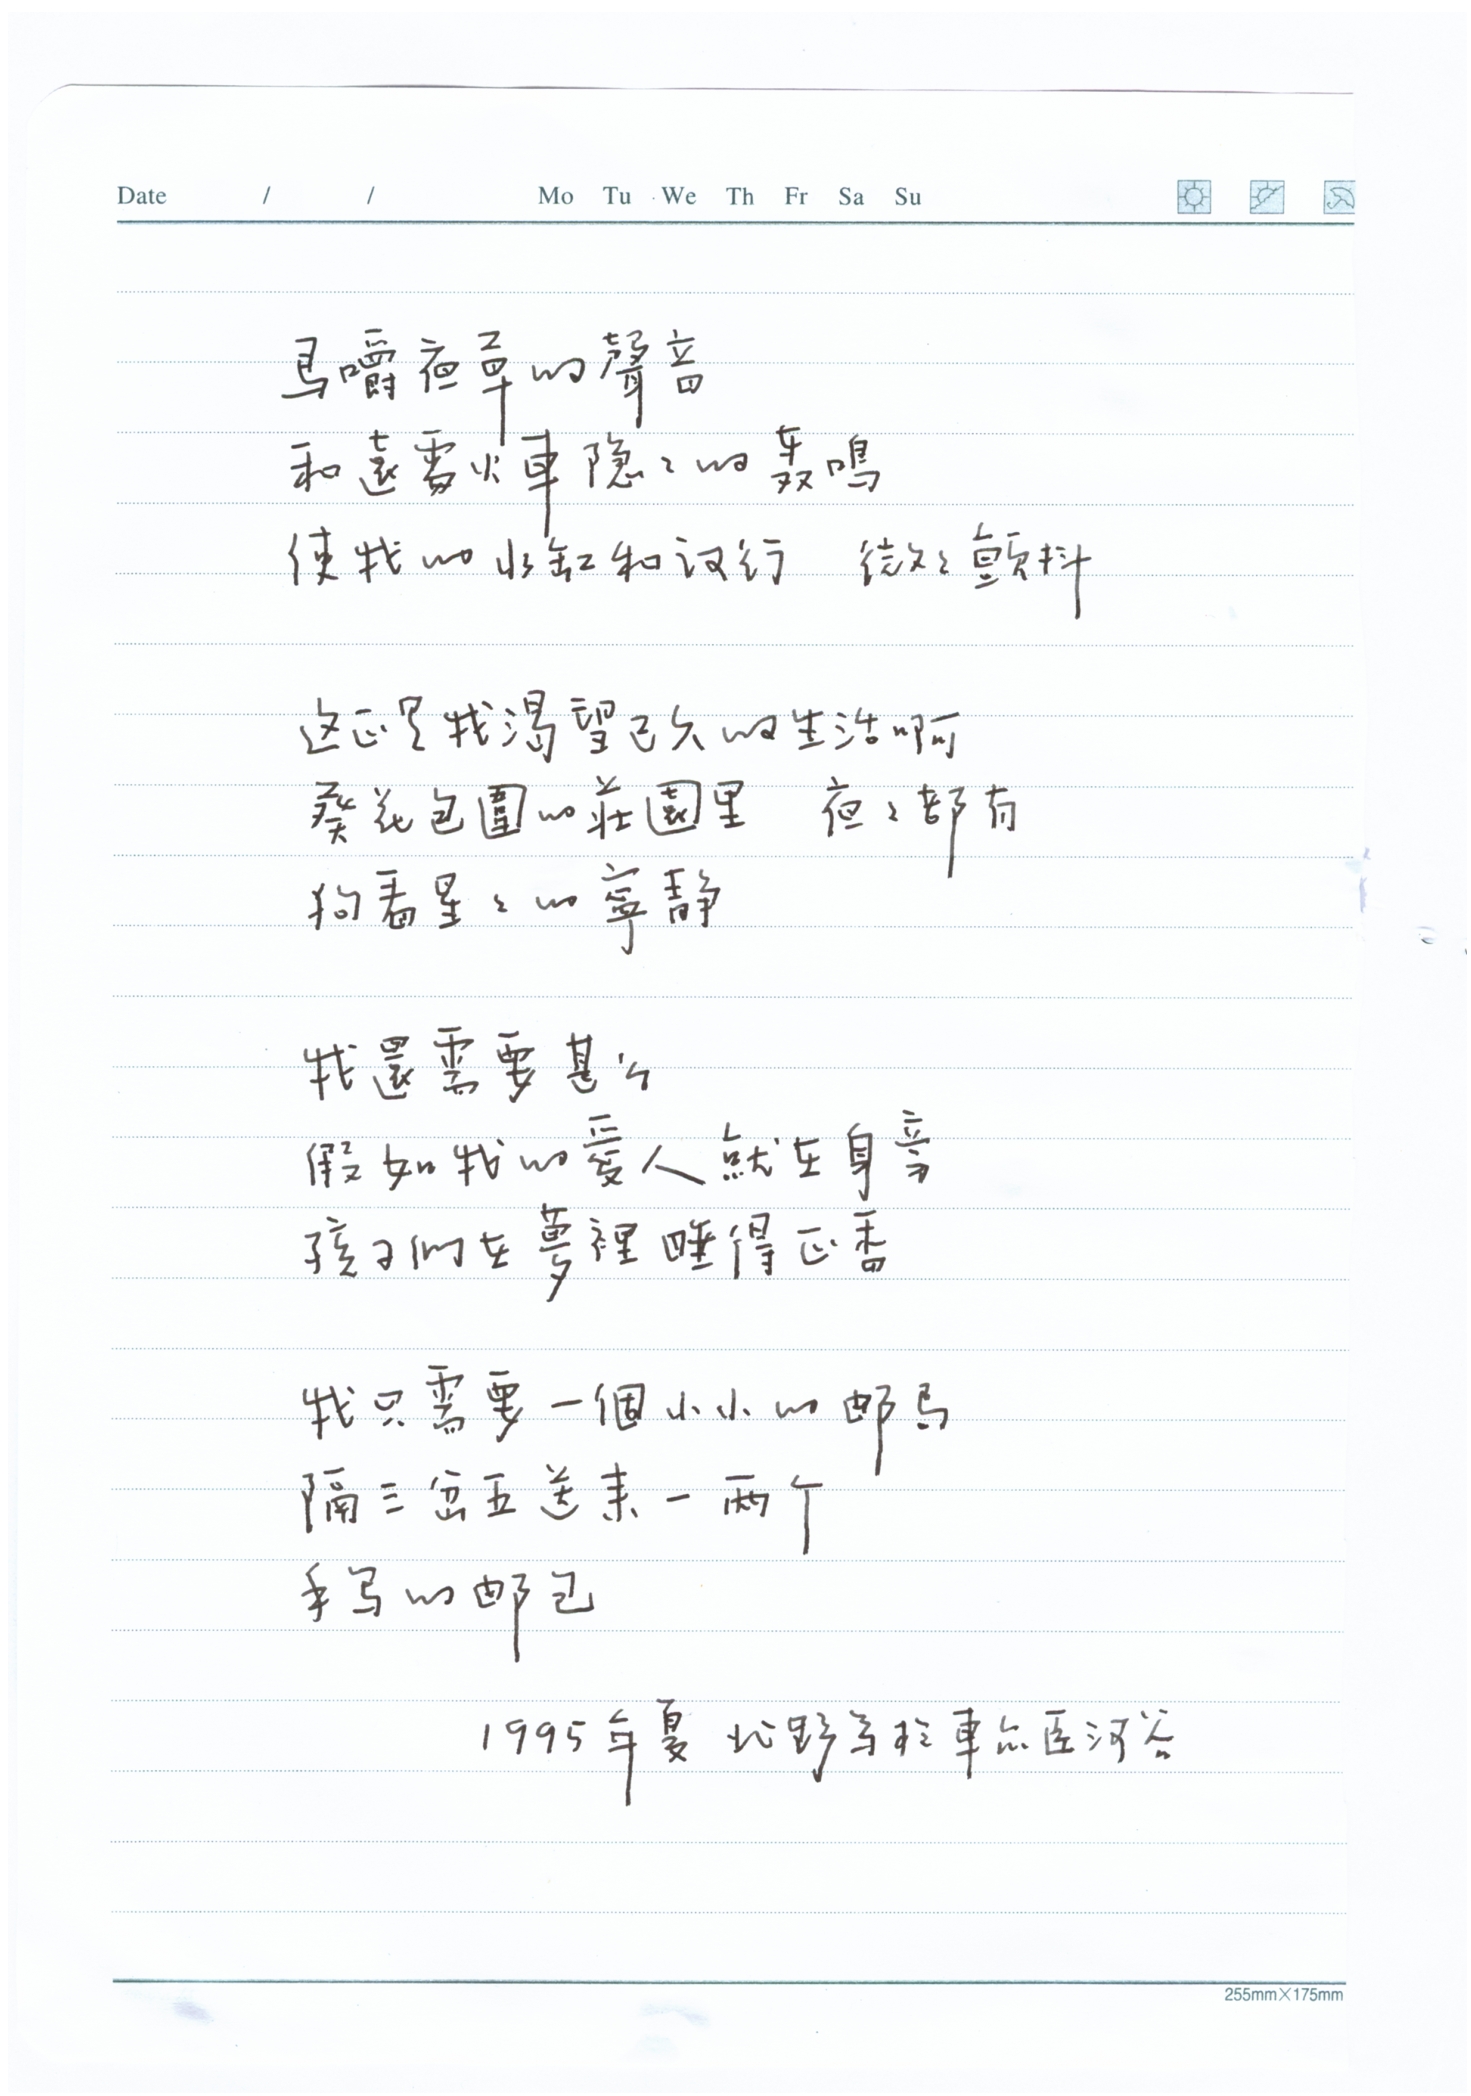 Date / / Mo Tu We Th Fr Sa Su
马嚼夜草的聲音
和遠處火車隐〻的轰鳴
使我的水缸和诗行 微〻顫抖
这正是我渴望已久的生活啊
葵花包圍的莊園里 夜〻都有
狗看星〻的寧静
我還需要甚么
假如我的爱人就在身旁
孩子們在夢裡睡得正香
我只需要一個小小的邮局
隔三岔五送来一两个
手写的邮包
1995年夏 北野写於車尔臣河谷
255mm×175mm